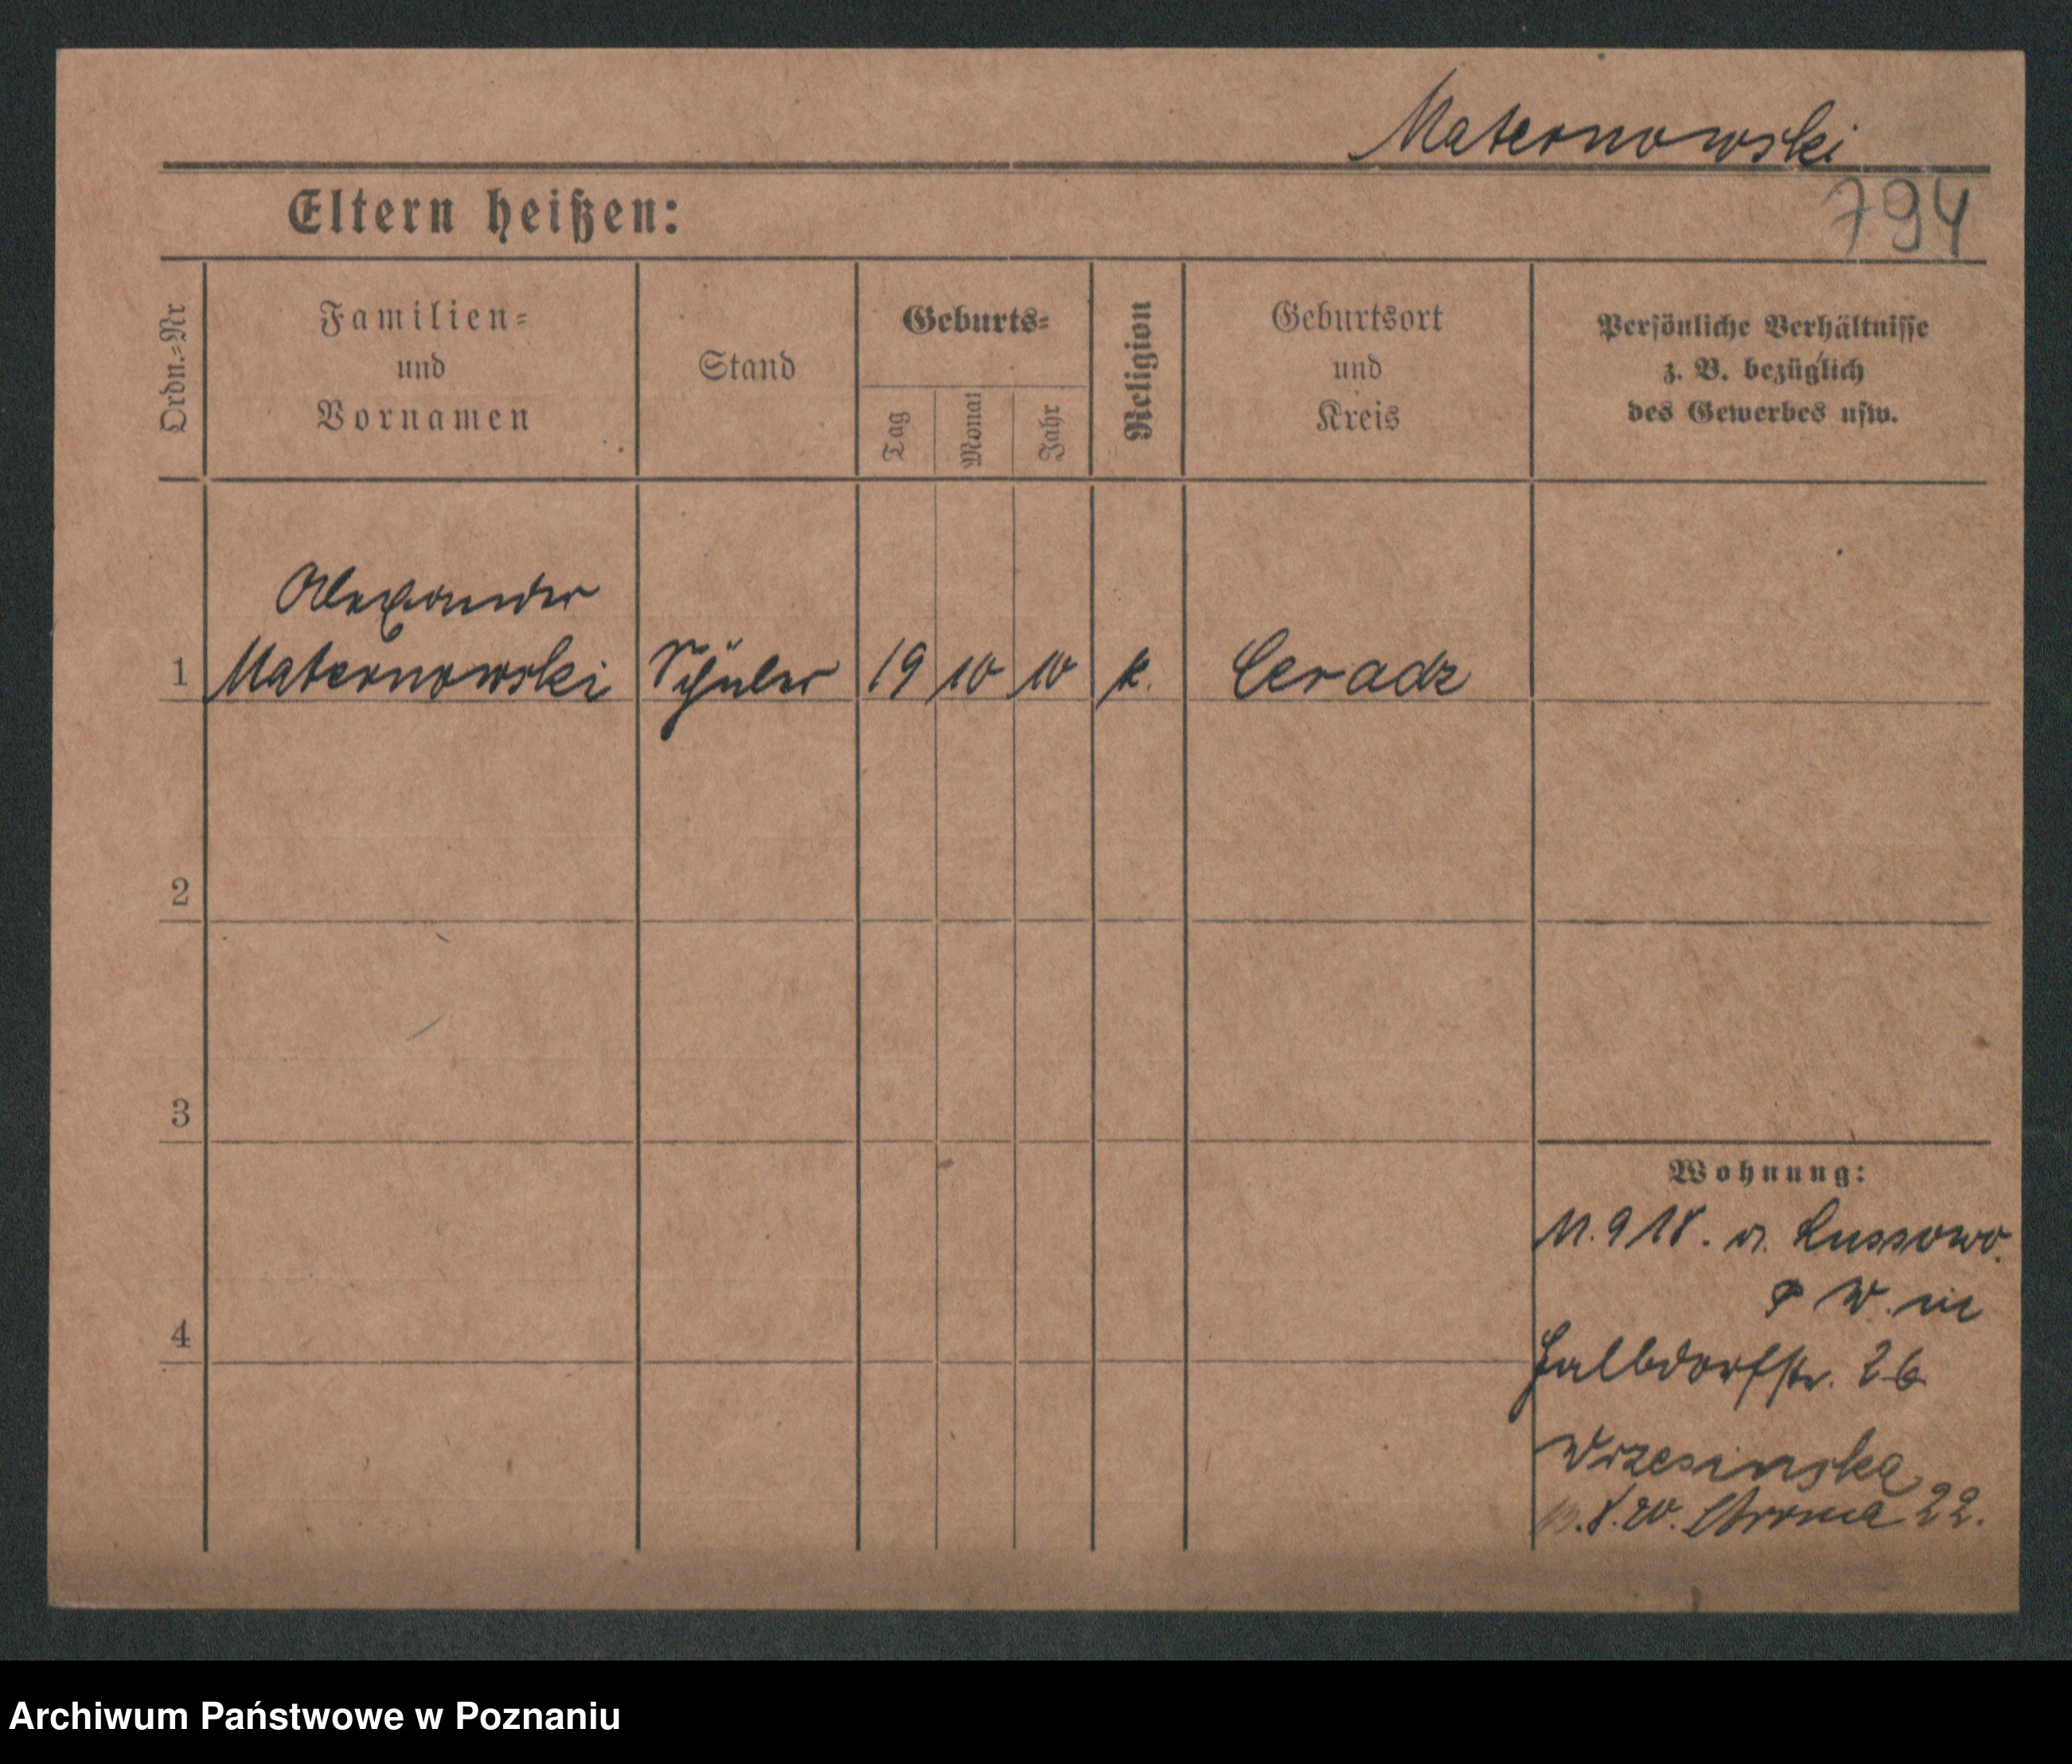 Maternowski
794
Eltern heißen:
Ordn.=Nr
Familien=
und
Vornamen
Stand
Geburts=
Tag
Monat
Jahr
Religion
Geburtsort
und
Kreis
Persönliche Verhältnisse
z. B. bezüglich
des Gewerbes usw.
Alexander
1 Maternowski Schüler 19 10 10 k. Ceradz
2
3
4
Wohnung:
11.9 18. v. Lussowo.
W.
Halbdorfstr. 26
Wrzesinska
8.20. Stroma 22.
Archiwum Państwowe w Poznaniu